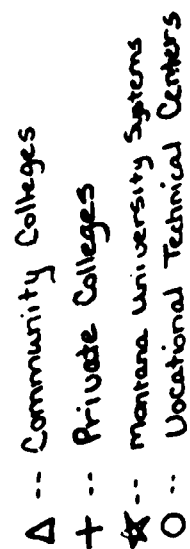 △ -- Community Colleges
+ -- Private Colleges
☆ -- Montana University Systems
○ -- Vocational Technical Centers